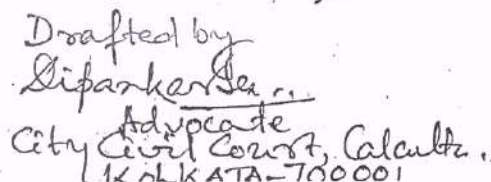 Drafted by
Dipankar Sen ..
Advocate
City Civil Court, Calcutta.
KOLKATA-700001